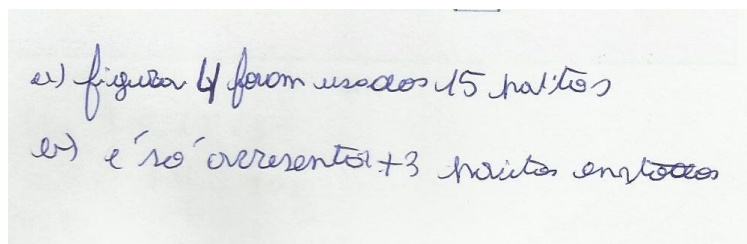 a) figura 4 foram usados 15 palitos
b) é só acresentar +3 palitos em todos